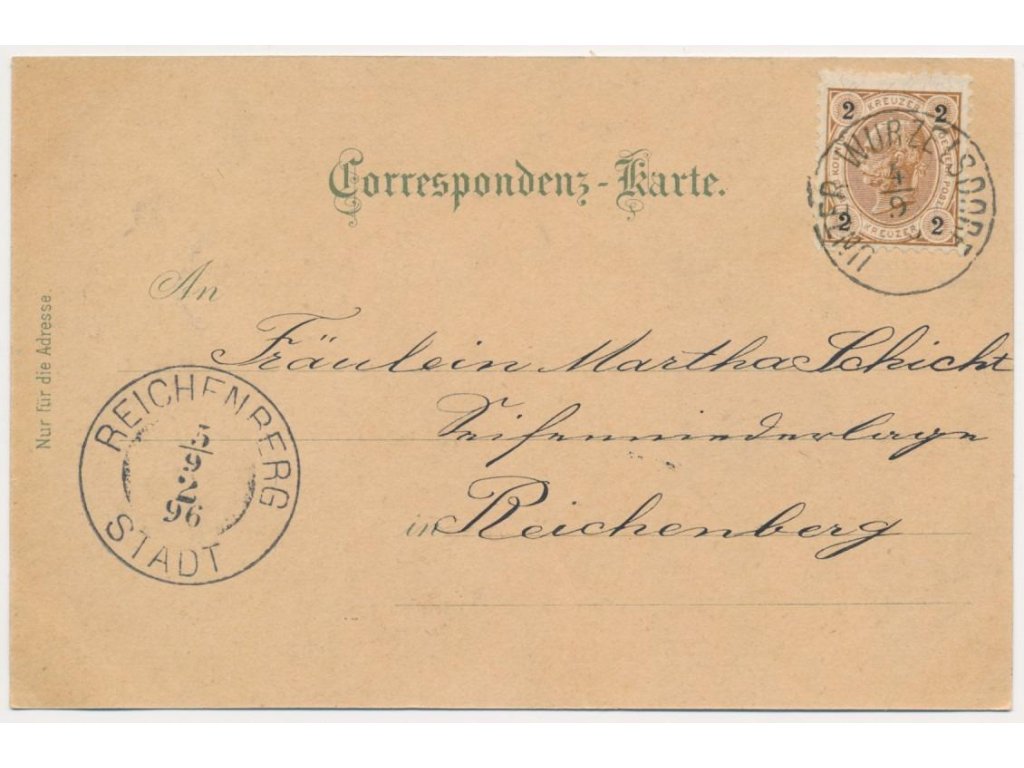 Correspondenz-Karte.
2 KREUZER 2
2 KREUZER 2
UNTER WURZELSDORF
4
9
An
Nur für die Adresse.
Fräulein Martha Schicht
Seifenniederlage
in Reichenberg
REICHENBERG
5
9
96
STADT